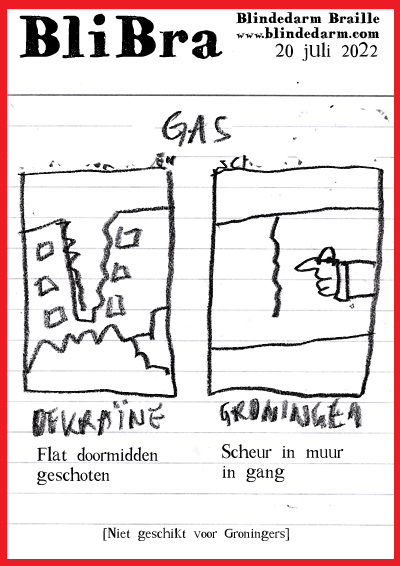 BliBra
Blindedarm Braille
www.blindedarm.com
20 juli 2022
GAS
OEKRAÏNE
GRONINGEN
Flat doormidden
geschoten
Scheur in muur
in gang
[Niet geschikt voor Groningers]